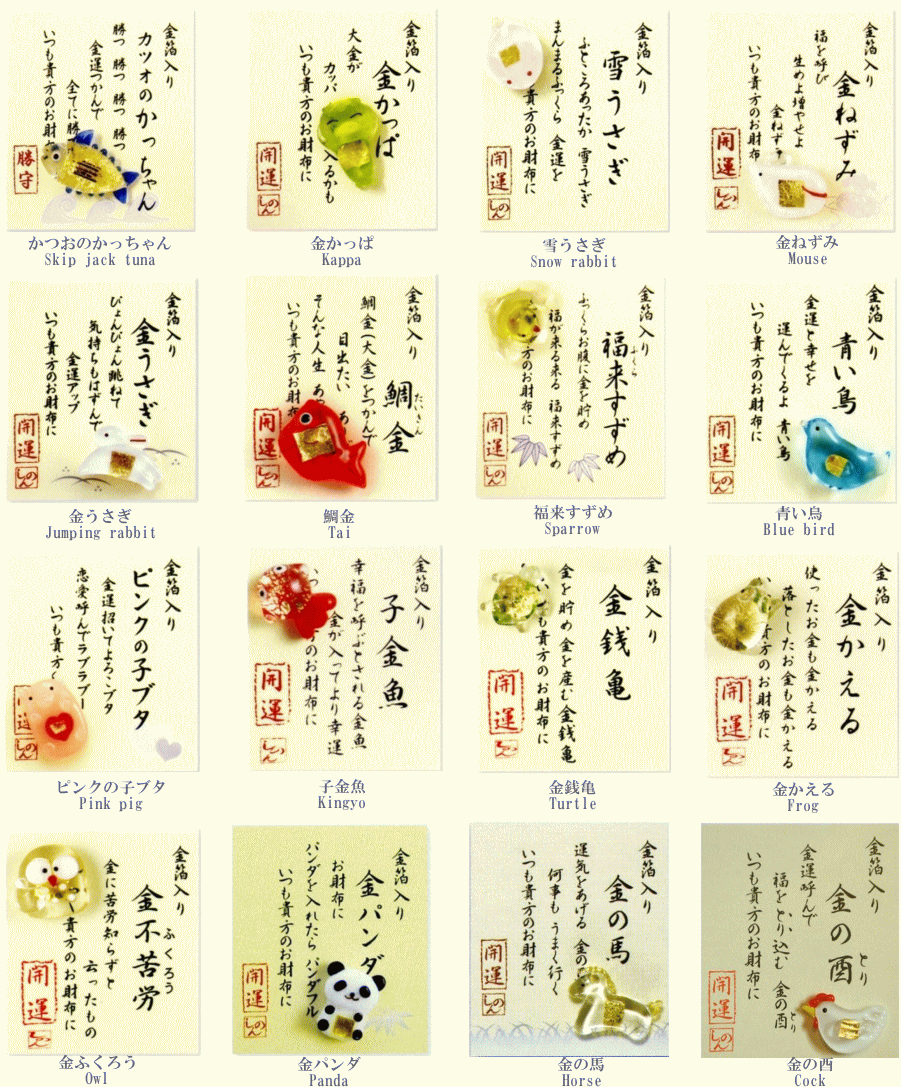 金箔入り
カツオのかっちゃん
勝つ 勝つ 勝つ 勝つ
金運つかんで
全てに勝
いつも貴方のお財
勝守
かつおのかっちゃん
Skip jack tuna
金箔入り
金かっぱ
大金が
カッパ
入るかも
いつも貴方のお財布に
開運
しのん
金かっぱ
Kappa
金箔入り
雪うさぎ
ふところあったか 雪うさぎ
まんまるふっくら 金運を
貴方のお財布に
開運
しのん
雪うさぎ
Snow rabbit
金箔入り
金ねずみ
福を呼び
生めよ増やせよ
金ねず
いつも貴方のお財布
開運
しのん
金ねずみ
Mouse
金箔入り
金うさぎ
ぴょんぴょん跳ねて
気持ちもはずんで
金運アップ
いつも貴方のお財布に
開運
しのん
金うさぎ
Jumping rabbit
金箔入り
鯛金
たいきん
鯛金(大金)をつかんで
目出たい
そんな人生
いつも貴方のお財布に
開運
しのん
鯛金
Tai
金箔入り
福来すずめ
ふくら
ふっくらお腹に金を貯め
福が来る来る 福来すずめ
方のお財布に
開運
しのん
福来すずめ
Sparrow
金箔入り
青い鳥
金運と幸せを
運んでくるよ 青い鳥
いつも貴方のお財布に
開運
しのん
青い鳥
Blue bird
金箔入り
ピンクの子ブタ
金運招いてよろこブタ
恋愛呼んでラブラブー
いつも貴方
しのん
ピンクの子ブタ
Pink pig
金箔入り
子金魚
幸福を呼ぶとされる金魚
金が入ってより幸運
のお財布に
開運
しのん
子金魚
Kingyo
金箔入り
金銭亀
金を貯め金を産む金銭亀
いつも貴方のお財布に
開運
金銭亀
Turtle
金箔入り
金かえる
使ったお金も金かえる
落としたお金も金かえる
貴方のお財布に
開運
金かえる
Frog
金箔入り
金不苦労
ふくろう
金に苦労知らずと
云ったもの
貴方のお財布に
開運
金ふくろう
Owl
金箔入り
金パンダ
お財布に
パンダを入れたら パンダフル
いつも貴方のお財布に
開運
しのん
金パンダ
Panda
金箔入り
金の馬
運気をあげる 金の
何事も うまく行く
いつも貴方のお財布に
開運
しのん
金の馬
Horse
金箔入り
金の酉
とり
金運呼んで
福を とり込む 金の酉
とり
いつも貴方のお財布に
開運
しのん
金の酉
Cock